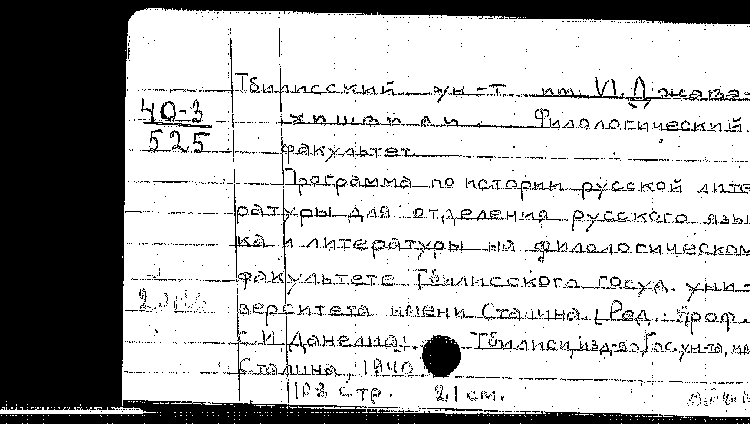 Тбилисский ун-т им. Джава-
40-3
хишвили. Филологический
525
факультет.
Программа по истории русской лите
ратуры для отделения русского язы
ка и литературы на филологическом
факультете Тбилисского госуд. уни-
верситета имени Сталина. [Ред.: проф.
Данелиа]. Тбилиси, изд-во Гос. ун-та, им
Сталина, 1940.
стр. 21 см.